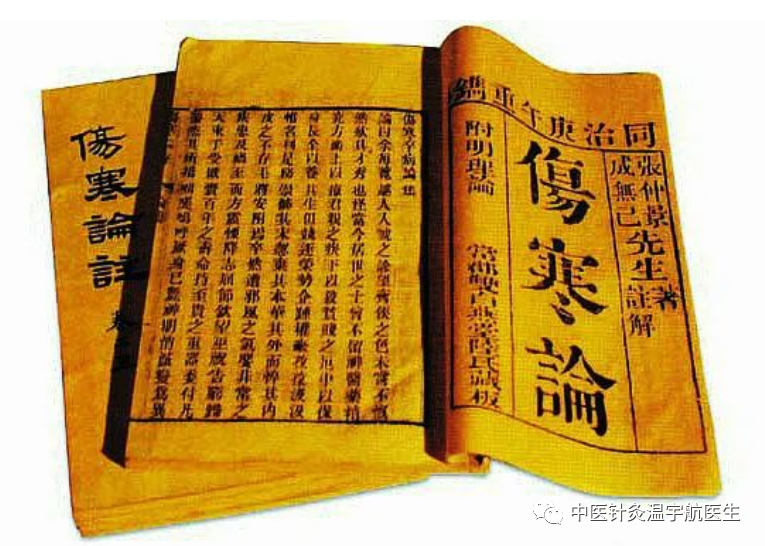 同治庚午重鐫
張仲景著
成無己先生註解
傷寒論
附明理論 常郡雙白燕堂陸氏藏板
傷寒卒病論集
論曰余每覽越人入虢之診望齊侯之色未嘗不慨
然歎其才秀也怪當今居世之士曾不留神醫藥精
究方術上以療君親之疾下以救貧賤之厄中以保
身長全以養其生但競逐榮勢企踵權豪孜孜汲汲
惟名利是務崇飾其末忽棄其本華其外而悴其內
皮之不存毛將安附焉卒然遭邪風之氣嬰非常之
疾患及禍至而方震慄降志屈節欽望巫祝告窮歸
天束手受敗賫百年之壽命持至貴之重器委付凡
醫恣其所措咄嗟嗚呼厥身已斃神明消滅變為異
傷寒論註 卷
中医针灸温宇航医生